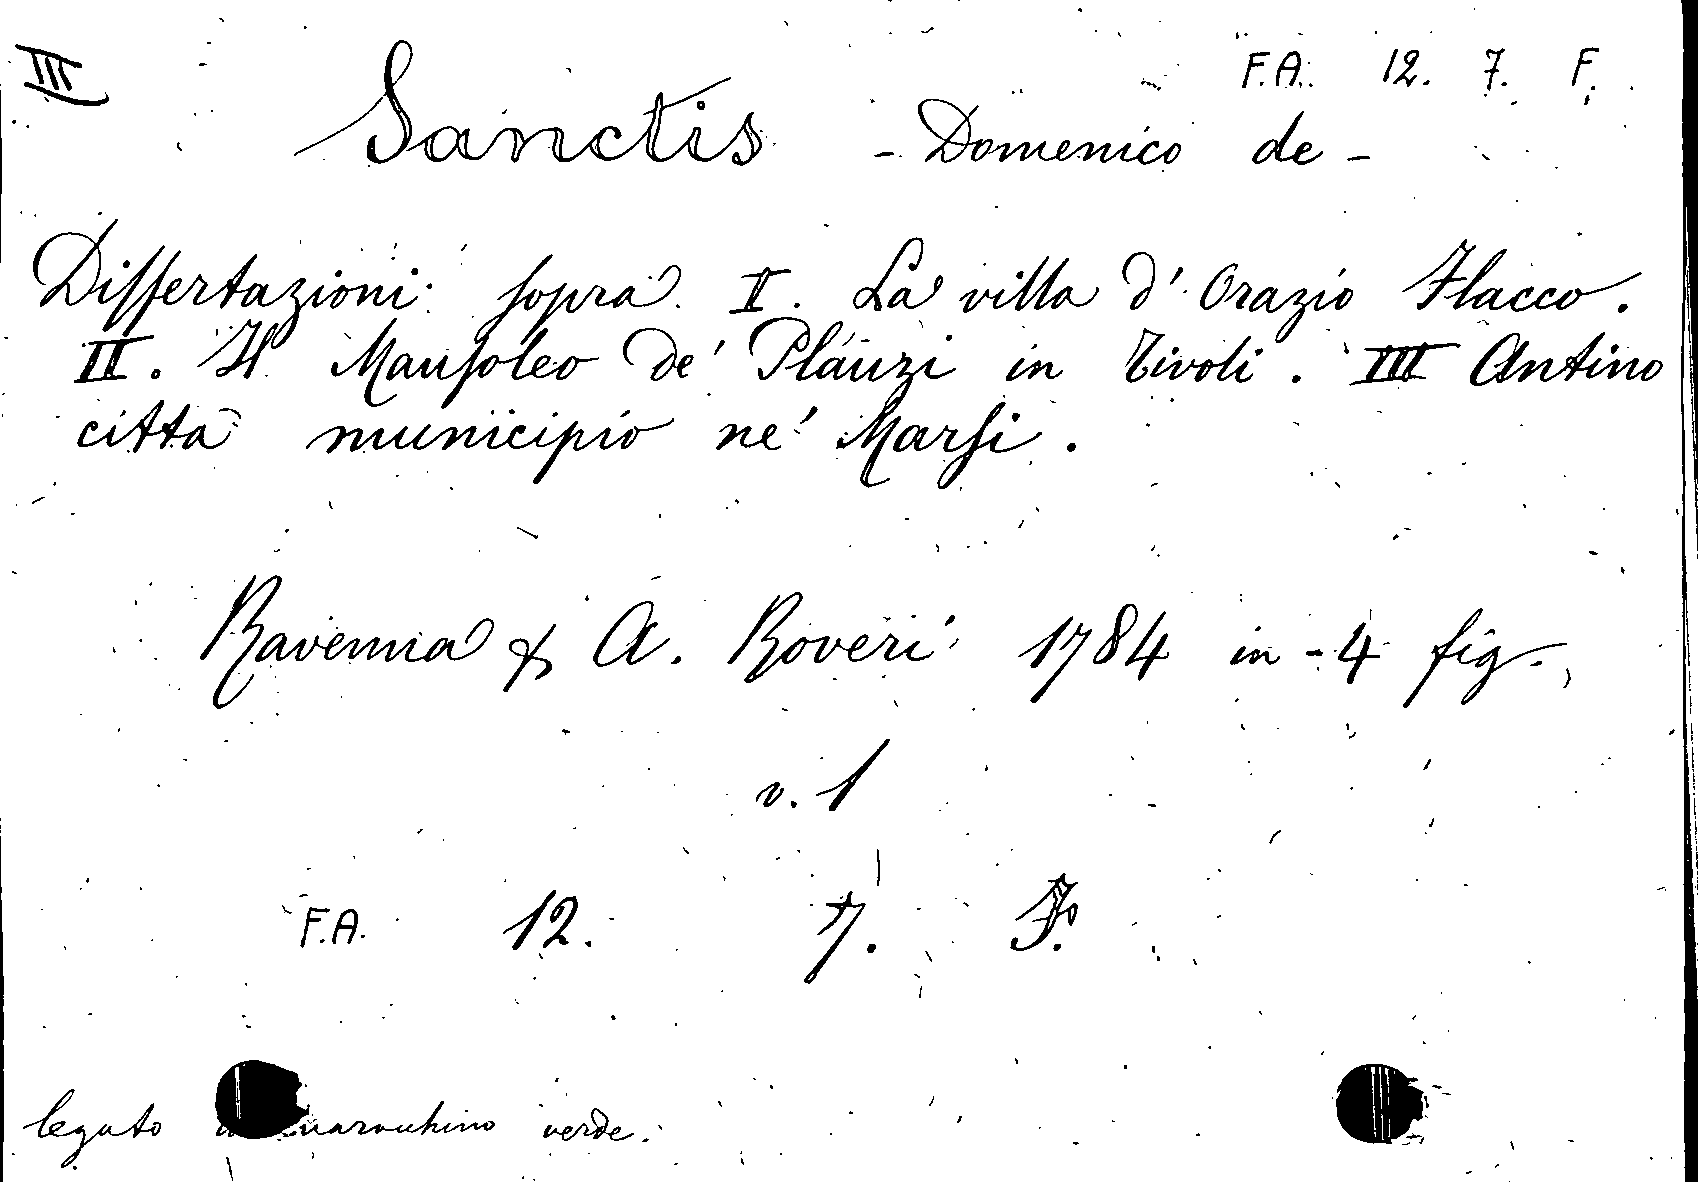 III
F.A. 12. 7. F.
Sanctis - Domenico de -
Dissertazioni sopra I. La villa d' Orazio Flacco.
II. Il Mausoleo de' Plauzi in Tivoli. III Antino
città municipio ne' Marsi.
Ravenna x A. Roveri 1784 in-4 fig.
v. 1
F.A. 12. 7. F.
legato marocchino verde.